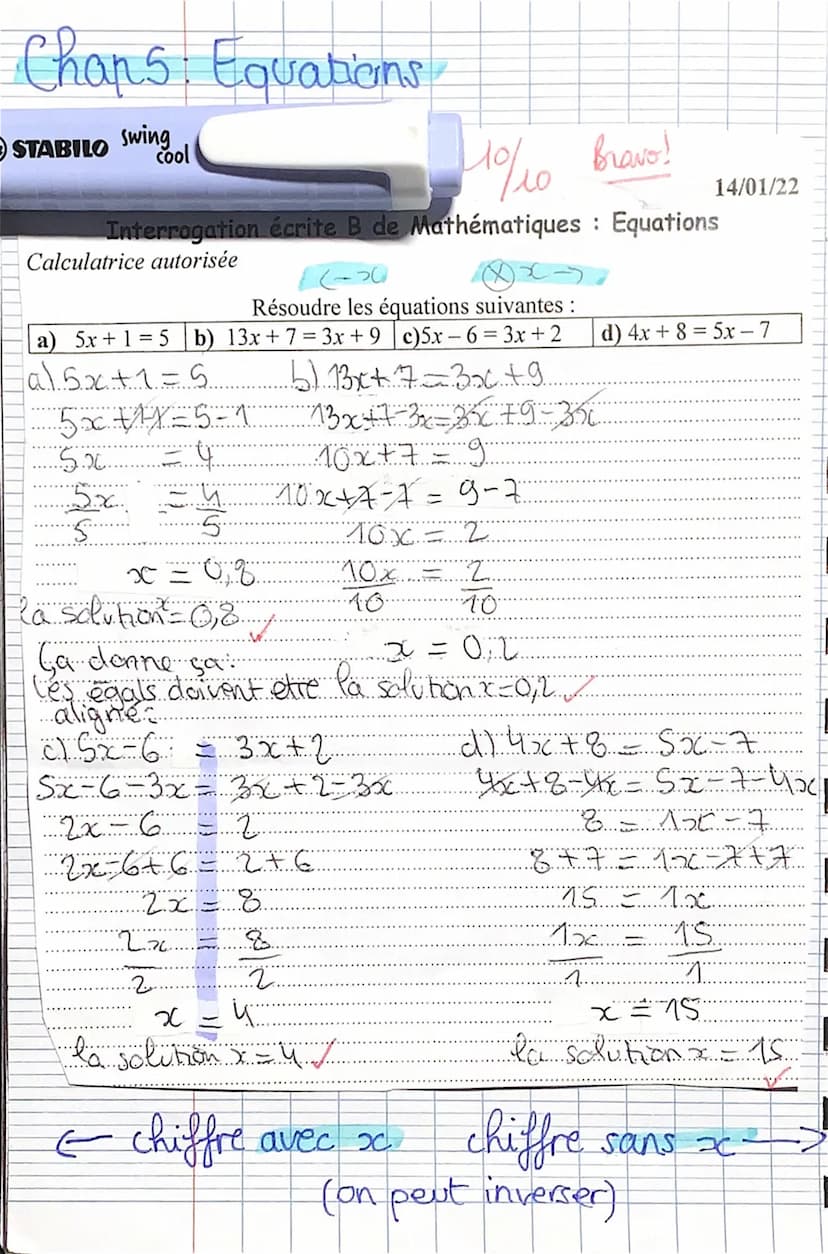 Chap 5 : Equations
STABILO swing cool
10/10 Bravo!
14/01/22
Interrogation écrite B de Mathématiques : Equations
Calculatrice autorisée
<- x (x) x ->
Résoudre les équations suivantes :
a) 5x + 1 = 5 b) 13x + 7 = 3x + 9 c)5x – 6 = 3x + 2 d) 4x + 8 = 5x – 7
a) 5x+1=5
5x+1-1=5-1
5x = 4
5x/5 = 4/5
x = 0,8
la solution x=0,8 ✓
b) 13x+7=3x+9
13x+7-3x=3x+9-3x
10x+7 = 9
10x+7-7 = 9-7
10x = 2
10x/10 = 2/10
x = 0,2
la solution x=0,2 ✓
Ça donne ça:
Les égals doivent etre
aligné:
c) 5x-6 = 3x+2
5x-6-3x = 3x+2-3x
2x-6 = 2
2x-6+6 = 2+6
2x = 8
2x/2 = 8/2
x = 4
la solution x=4 ✓
d) 4x+8 = 5x-7
4x+8-4x = 5x-7-4x
8 = 1x-7
8+7 = 1x-7+7
15 = 1x
1x/1 = 15/1
x = 15
la solution x = 15 ✓
← chiffre avec x chiffre sans x →
(on peut inverser)